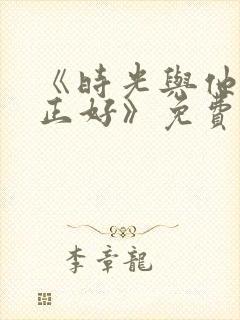 《時光與他
正好》免費
李章龍